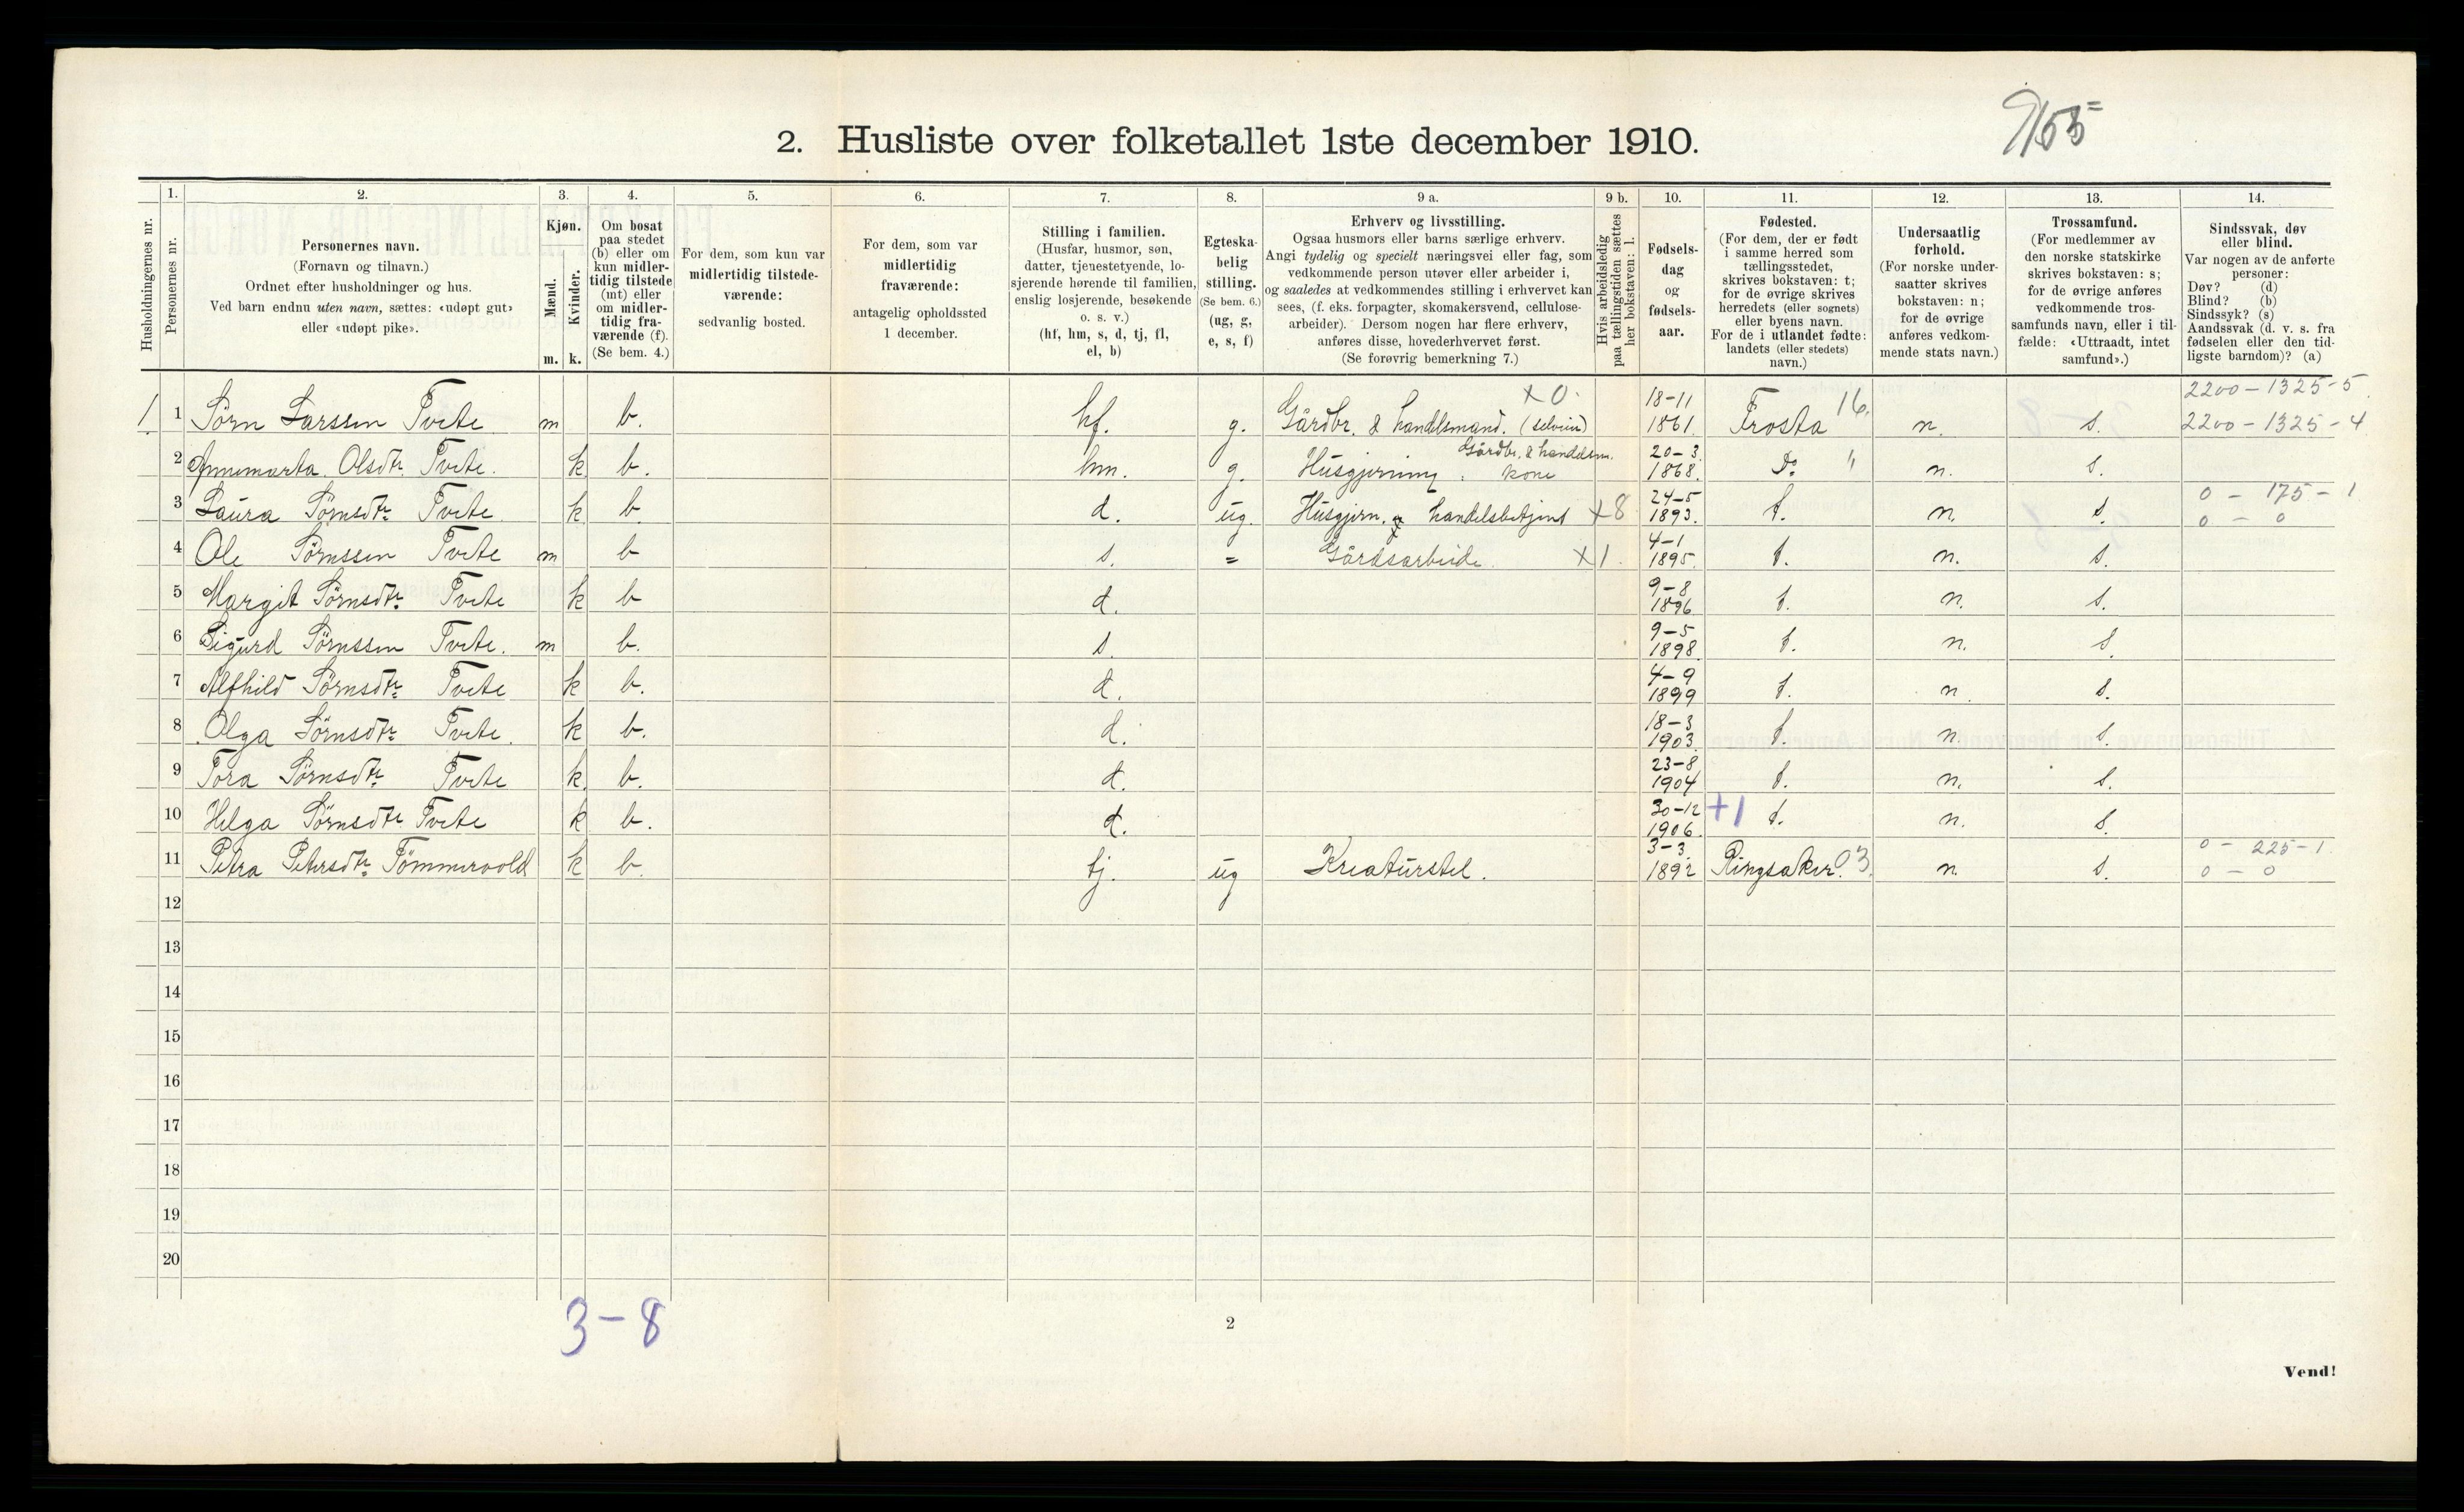 2. Husliste over folketallet 1ste december 1910.
Husholdningernes nr.
1.
Personernes nr.
2.
Personernes navn.
(Fornavn og tilnavn.)
Ordnet efter husholdninger og hus.
Ved barn endnu uten navn, sættes: «udøpt gut»
eller «udøpt pike».
3.
Kjøn.
Mænd.
Kvinder.
m. k.
4.
Om bosat
paa stedet
(b) eller om
kun midler-
tidig tilstede
(mt) eller
om midler-
tidig fra-
værende (f).
(Se bem. 4.)
5.
For dem, som kun var
midlertidig tilstede-
værende:
sedvanlig bosted.
6.
For dem, som var
midlertidig
fraværende:
antagelig opholdssted
1 december.
7.
Stilling i familien.
(Husfar, husmor, søn,
datter, tjenestetyende, lo-
sjerende hørende til familien,
enslig losjerende, besøkende
o. s. v.)
(hf, hm, s, d, tj, fl,
el, b)
8.
Egteska-
belig
stilling.
(Se bem. 6.)
(ug, g,
e, s, f)
9 a.
Erhverv og livsstilling.
Ogsaa husmors eller barns særlige erhverv.
Angi tydelig og specielt næringsvei eller fag, som
vedkommende person utøver eller arbeider i,
og saaledes at vedkommendes stilling i erhvervet kan
sees, (f. eks. forpagter, skomakersvend, cellulose-
arbeider). Dersom nogen har flere erhverv,
anføres disse, hovederhvervet først.
(Se forøvrig bemerkning 7.)
9 b.
Hvis arbeidsledig
paa tællingstiden sættes
her bokstaven: l.
10.
Fødsels-
dag
og
fødsels-
aar.
11.
Fødested.
(For dem, der er født
i samme herred som
tællingsstedet,
skrives bokstaven: t;
for de øvrige skrives
herredets (eller sognets)
eller byens navn.
For de i utlandet fødte:
landets (eller stedets)
navn.)
12.
Undersaatlig
forhold.
(For norske under-
saatter skrives
bokstaven: n;
for de øvrige
anføres vedkom-
mende stats navn.)
13.
Trossamfund.
(For medlemmer av
den norske statskirke
skrives bokstaven: s;
for de øvrige anføres
vedkommende tros-
samfunds navn, eller i til-
fælde: «Uttraadt, intet
samfund».)
14.
Sindssvak, døv
eller blind.
Var nogen av de anførte
personer:
Døv? (d)
Blind? (b)
Sindssyk? (s)
Aandssvak (d. v. s. fra
fødselen eller den tid-
ligste barndom)? (a)
2200 - 1325 - 5
1 1 Sörn Larssen Tvete m b. hf. g. Gårdbr. & handelsmand. (selveier) x 0. 18-11 1861. Frosta 16. n. s. 2200 - 1325 - 4
2 Annemarta Olsdtr. Tvete. k b. hm. g. Husgjerning. Gårdbr. & handelsm. kone 20-3 1868. Do " n. s.
3 Laura Sörnsdtr. Tvete k b d. ug. Husgjern. & handelsbetjent x8 24-5 1893. t. n. s. 0 - 175 - 1
0 - 0
4 Ole Sörnssen Tvete m b s. = Gårdsarbeide x1. 4-1 1895. t. n. s.
5 Margit Sörnsdtr. Tvete k b d. 9-8 1896 t. n. s.
6 Sigurd Sörnssen Tvete. m b. s. 9-5 1898. t. n. s.
7 Alfhild Sörnsdtr. Tvete k b. d. 4-9 1899 t. n. s.
8 Olga Sörnsdtr. Tvete. k b. d. 18-3 1903. t. n. s.
9 Tora Sörnsdtr. Tvete k. b. d. 23-8 1904 t. n. s.
10 Helga Sörnsdtr. Tvete k b. d. 30-12 1906. +1 t. n. s.
11 Petra Petersdtr. Tömmervold k b. tj. ug Kreaturstel. 3-3. 1892 Ringsaker. 03. n. s. 0 - 225 - 1.
0 - 0
12
13
14
15
16
17
18
19
20
3-8
2
Vend!